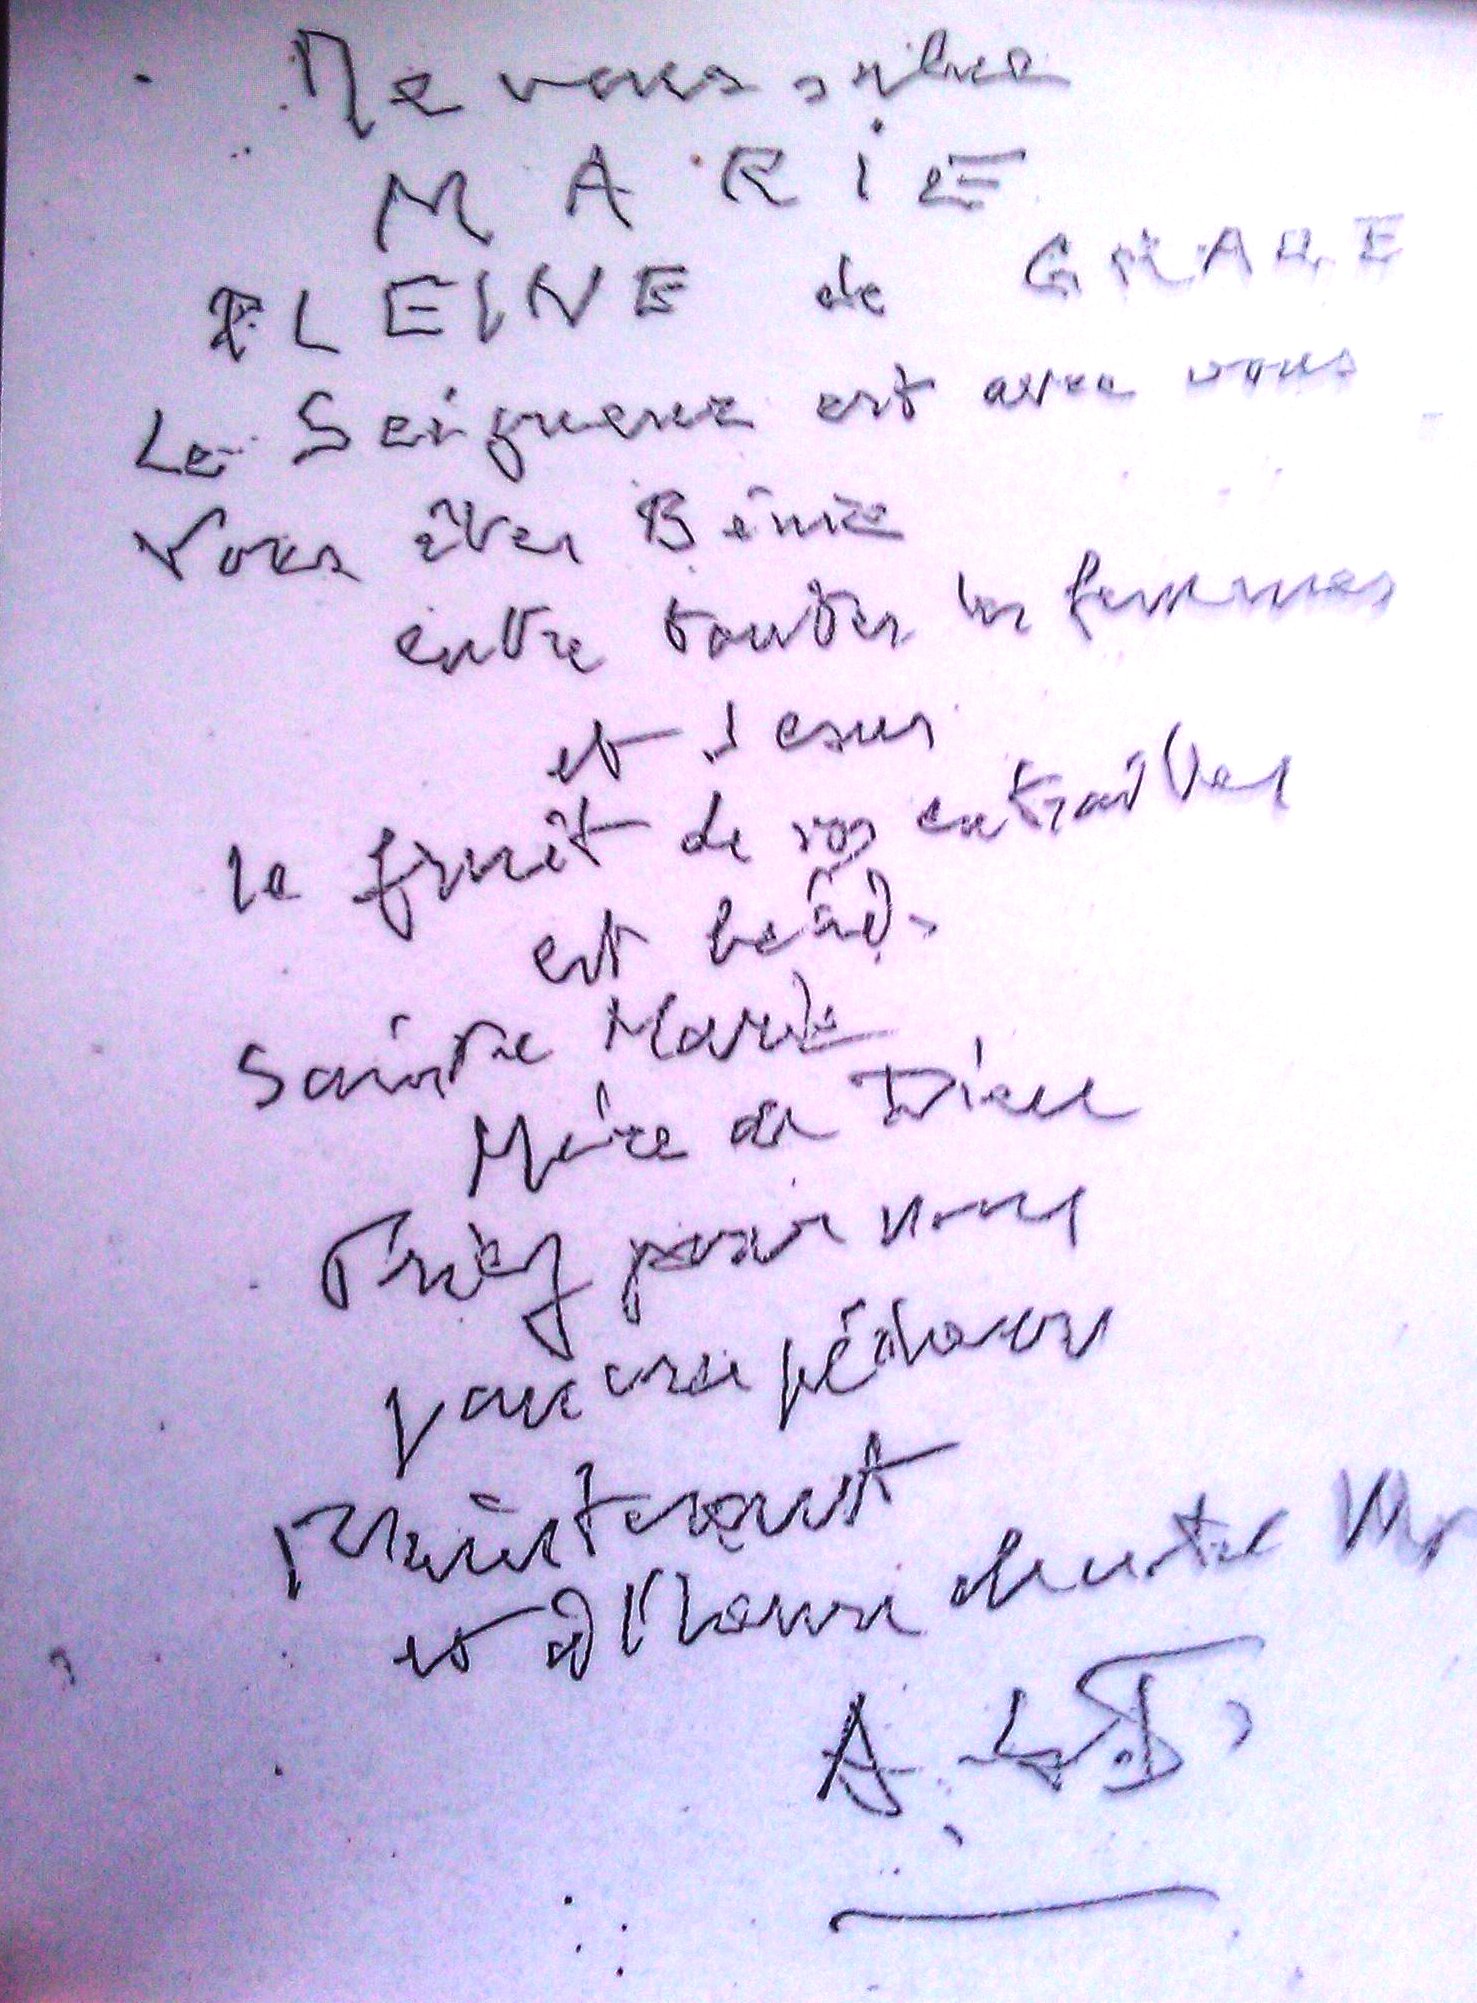 Je vous salue
MARiE
PLEINE de GRACE
Le Seigneur est avec vous
Vous êtes Bénie
entre toutes les femmes
et Jesus
le fruit de vos entrailles
est béni.
Sainte Marie
Mère de Dieu
Priez pour nous
pauvres pécheurs
Maintenant
et à l'heure de notre Mo